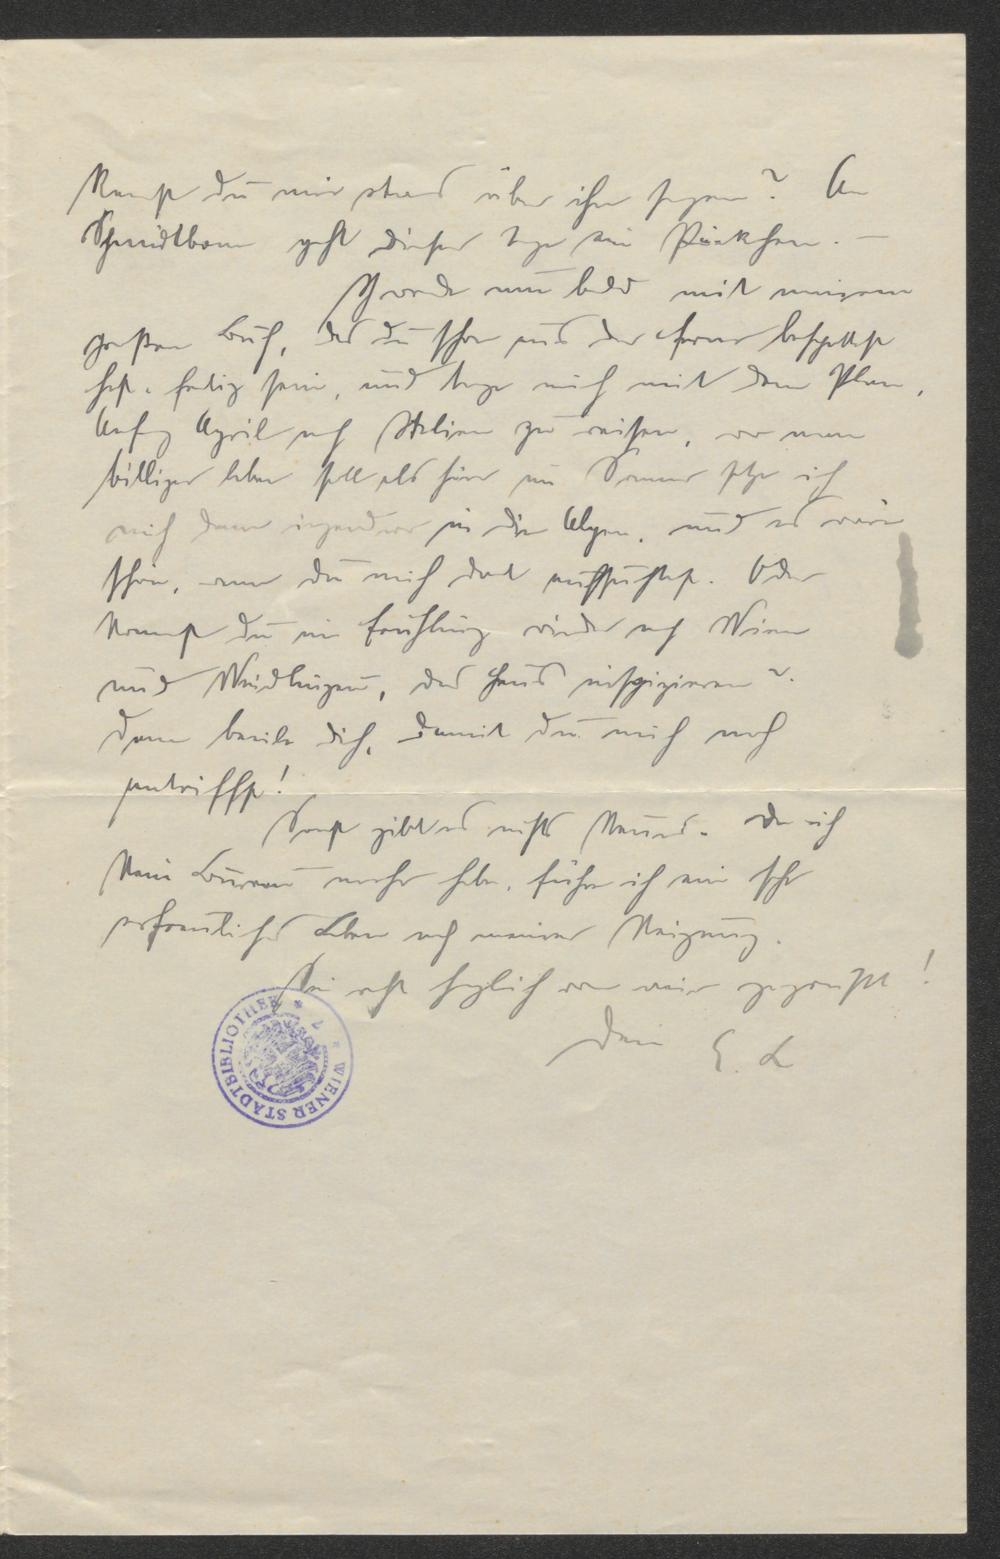 Kannst du mir etwas über ihn sagen? An
Schmidtbonn geht dieser Tage ein Päckchen. —
Ich werde nun bald mit meinem
großen Buch, das du schon aus der Ferne
hast, fertig sein, und trage mich mit dem Plan,
Anfang April nach Italien zu reisen, wo man
billiger leben soll als hier im Sommer setze ich
mich dann irgendwo in die Alpen, und es wäre
schön, wenn du mich dort aufsuchtest. Oder
kommst du im Frühling wieder nach Wien
und Weidlingau, das Haus inspizieren?
Dann beeile dich, damit du mich noch
antriffst!
Sonst gibt es nichts Neues. Da ich
kein Bureau mehr habe, führe ich ein sehr
erfreuliches Leben nach meiner Neigung.
Sei recht herzlich von mir gegrüßt!
Dein E. L
WIENER STADTBIBLIOTHEK